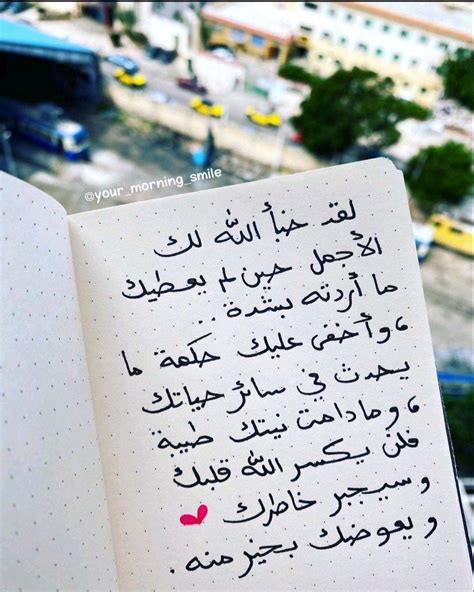 @your_morning_smile
لقد خبأ الله لك
الأجمل حين لم يعطيك
ما أردته بشدة ..
، وأخفى عليك حكمة ما
يحدث في سائر حياتك
، وما دامت نيتك طيبة
فلن يكسر الله قلبك
وسيجبر خاطرك
ويعوضك بخير منه .